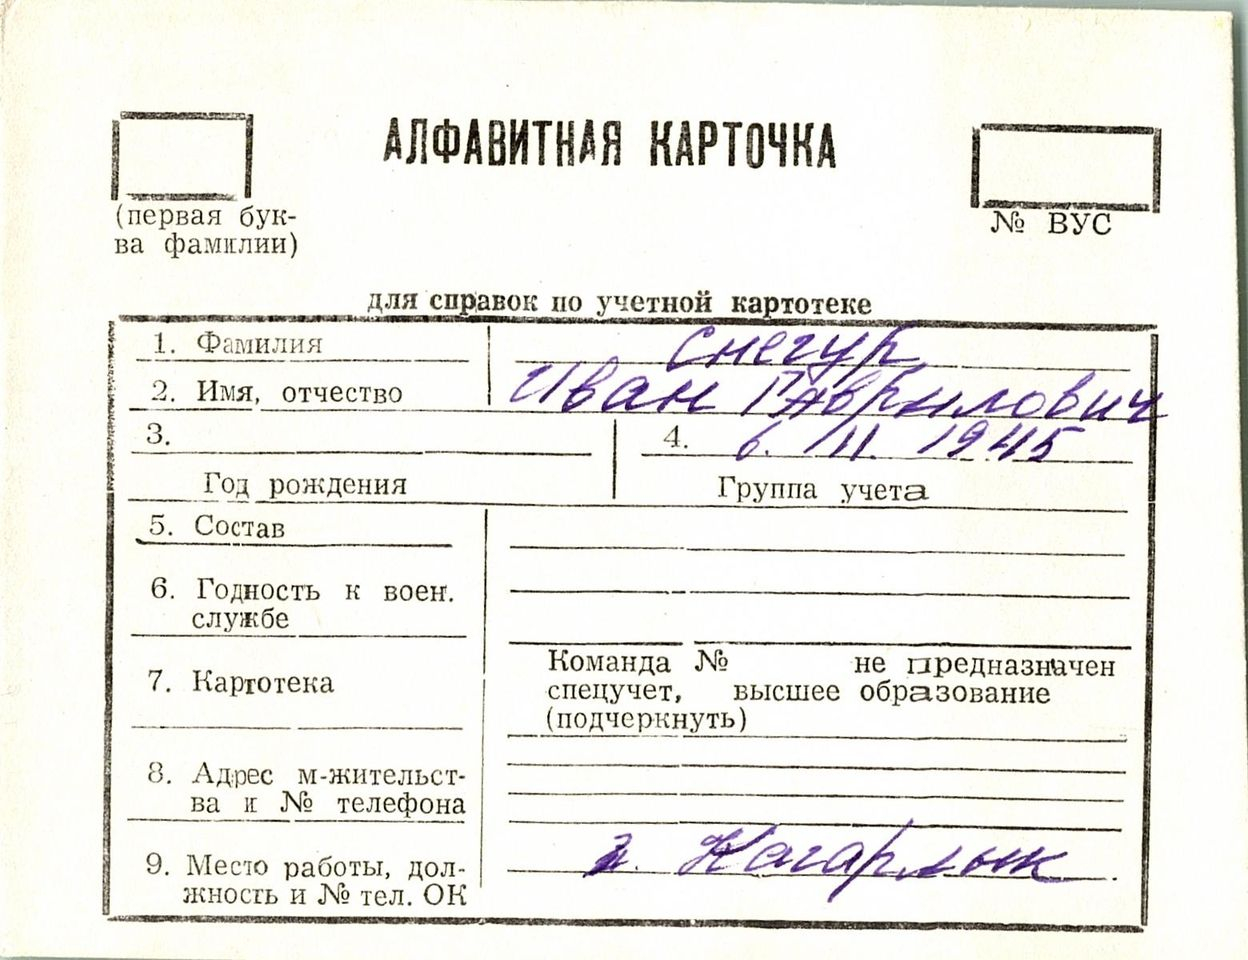 АЛФАВИТНАЯ КАРТОЧКА
(первая бук-
ва фамилии)
№ ВУС
для справок по учетной картотеке
1. Фамилия Снегур
2. Имя, отчество Иван Гаврилович
3.
Год рождения
4. 6. 11. 1945
Группа учета
5. Состав
6. Годность к воен.
службе
7. Картотека
Команда № не предназначен
спецучет, высшее образование
(подчеркнуть)
8. Адрес м-жительст-
ва и № телефона
г. Кагарлык
9. Место работы, дол-
жность и № тел. ОК